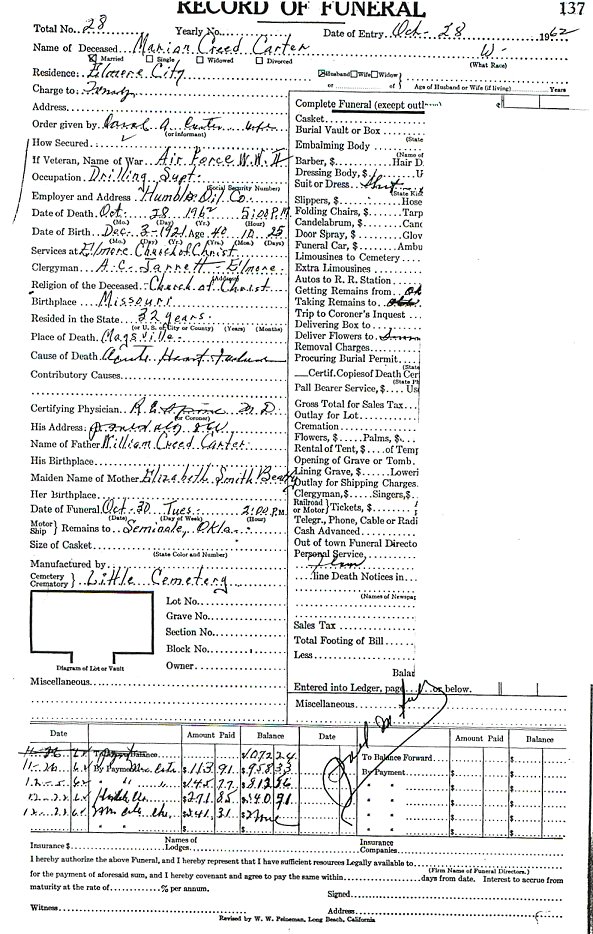 RECORD OF FUNERAL 137
Total No. 28 Yearly No. Date of Entry Oct- 28 1962
Name of Deceased Marian Creed Carter W-
Married Single Widowed Divorced (What Race)
Residence: Elmore City Husband Wife Widow
or Age of Husband or Wife (if living) Years
Charge to: Family
Address
Order given by A. Carter wife
(or informant)
How Secured
If Veteran, Name of War Air Force W.W. II
Occupation Drilling Supt.
(Social Security Number)
Employer and Address Humble Oil Co.
Date of Death Oct. 28 1962 5:00 P.M.
(Mo.) (Day) (Yr.) (Hour)
Date of Birth Dec- 3- 1921 Age 40 10 25
(Mo.) (Day) (Yr.) (Yrs.) (Mos.) (Days)
Services at Elmore Church of Christ
Clergyman A.C. Jarrett - Elmore
(Address)
Religion of the Deceased Church of Christ
Birthplace Missouri
Resided in the State 32 years.
(or U. S. or City or County) (Years) (Months)
Place of Death Maysville
Cause of Death Acute Heart Failure
Contributory Causes
Certifying Physician R.E. M.D.
(or Coroner)
His Address:
Name of Father William Creed Carter
His Birthplace
Maiden Name of Mother Elizabeth Smith Beatty
Her Birthplace
Date of Funeral Oct- 30 Tues. 2:00 P.M.
(Date) (Day of Week) (Hour)
Motor Ship } Remains to Seminole, Okla.
Size of Casket
(State Color and Number)
Manufactured by
Cemetery Crematory } Little Cemetery
Lot No.
Grave No.
Section No.
Block No.
Owner
Diagram of Lot or Vault
Miscellaneous
Complete Funeral (except outl
Casket
Burial Vault or Box
(State
Embalming Body
(Name of
Barber, $ Hair D
Dressing Body, $ U
Suit or Dress Suit
(State Kin
Slippers, $ Hose
Folding Chairs, $ Tarp
Candelabrum, $ Canc
Door Spray, $ Glov
Funeral Car, $ Ambu
Limousines to Cemetery
Extra Limousines
Autos to R. R. Station
Getting Remains from
Taking Remains to
Trip to Coroner's Inquest
Delivering Box to
Deliver Flowers to
Removal Charges
Procuring Burial Permit
(State
Certif. Copies of Death Cer
(State Pl
Pall Bearer Service, $ Us
Gross Total for Sales Tax
Outlay for Lot
Cremation
Flowers, $ Palms, $
Rental of Tent, $ of Temp
Opening of Grave or Tomb
Lining Grave, $ Loweri
Outlay for Shipping Charges
Clergyman, $ Singers, $
Railroad or Motor } Tickets, $
Telegr., Phone, Cable or Radi
Cash Advanced
Out of town Funeral Directo
Personal Service
line Death Notices in
(Names of Newspap
Sales Tax
Total Footing of Bill
Less
Balan
Entered into Ledger, page or below.
Miscellaneous
Date Amount Paid Balance Date Amount Paid Balance
Balance $ 1072 24 To Balance Forward $
By Payment $ 113 91 $ 958 33 By Payment $ $
" " $ 145 77 $ 812 56 " " $ $
$ 271 85 $ 540 71 " " $ $
$ 541 31 $ " " $ $
" " $ $ " " $ $
Insurance $ Names of Lodges Insurance Companies
I hereby authorize the above Funeral, and I hereby represent that I have sufficient resources Legally available to
(Firm Name of Funeral Directors.)
for the payment of aforesaid sum, and I hereby covenant and agree to pay the same within days from date. Interest to accrue from
maturity at the rate of % per annum.
Signed
Witness Address
Revised by W. W. Feineman, Long Beach, California